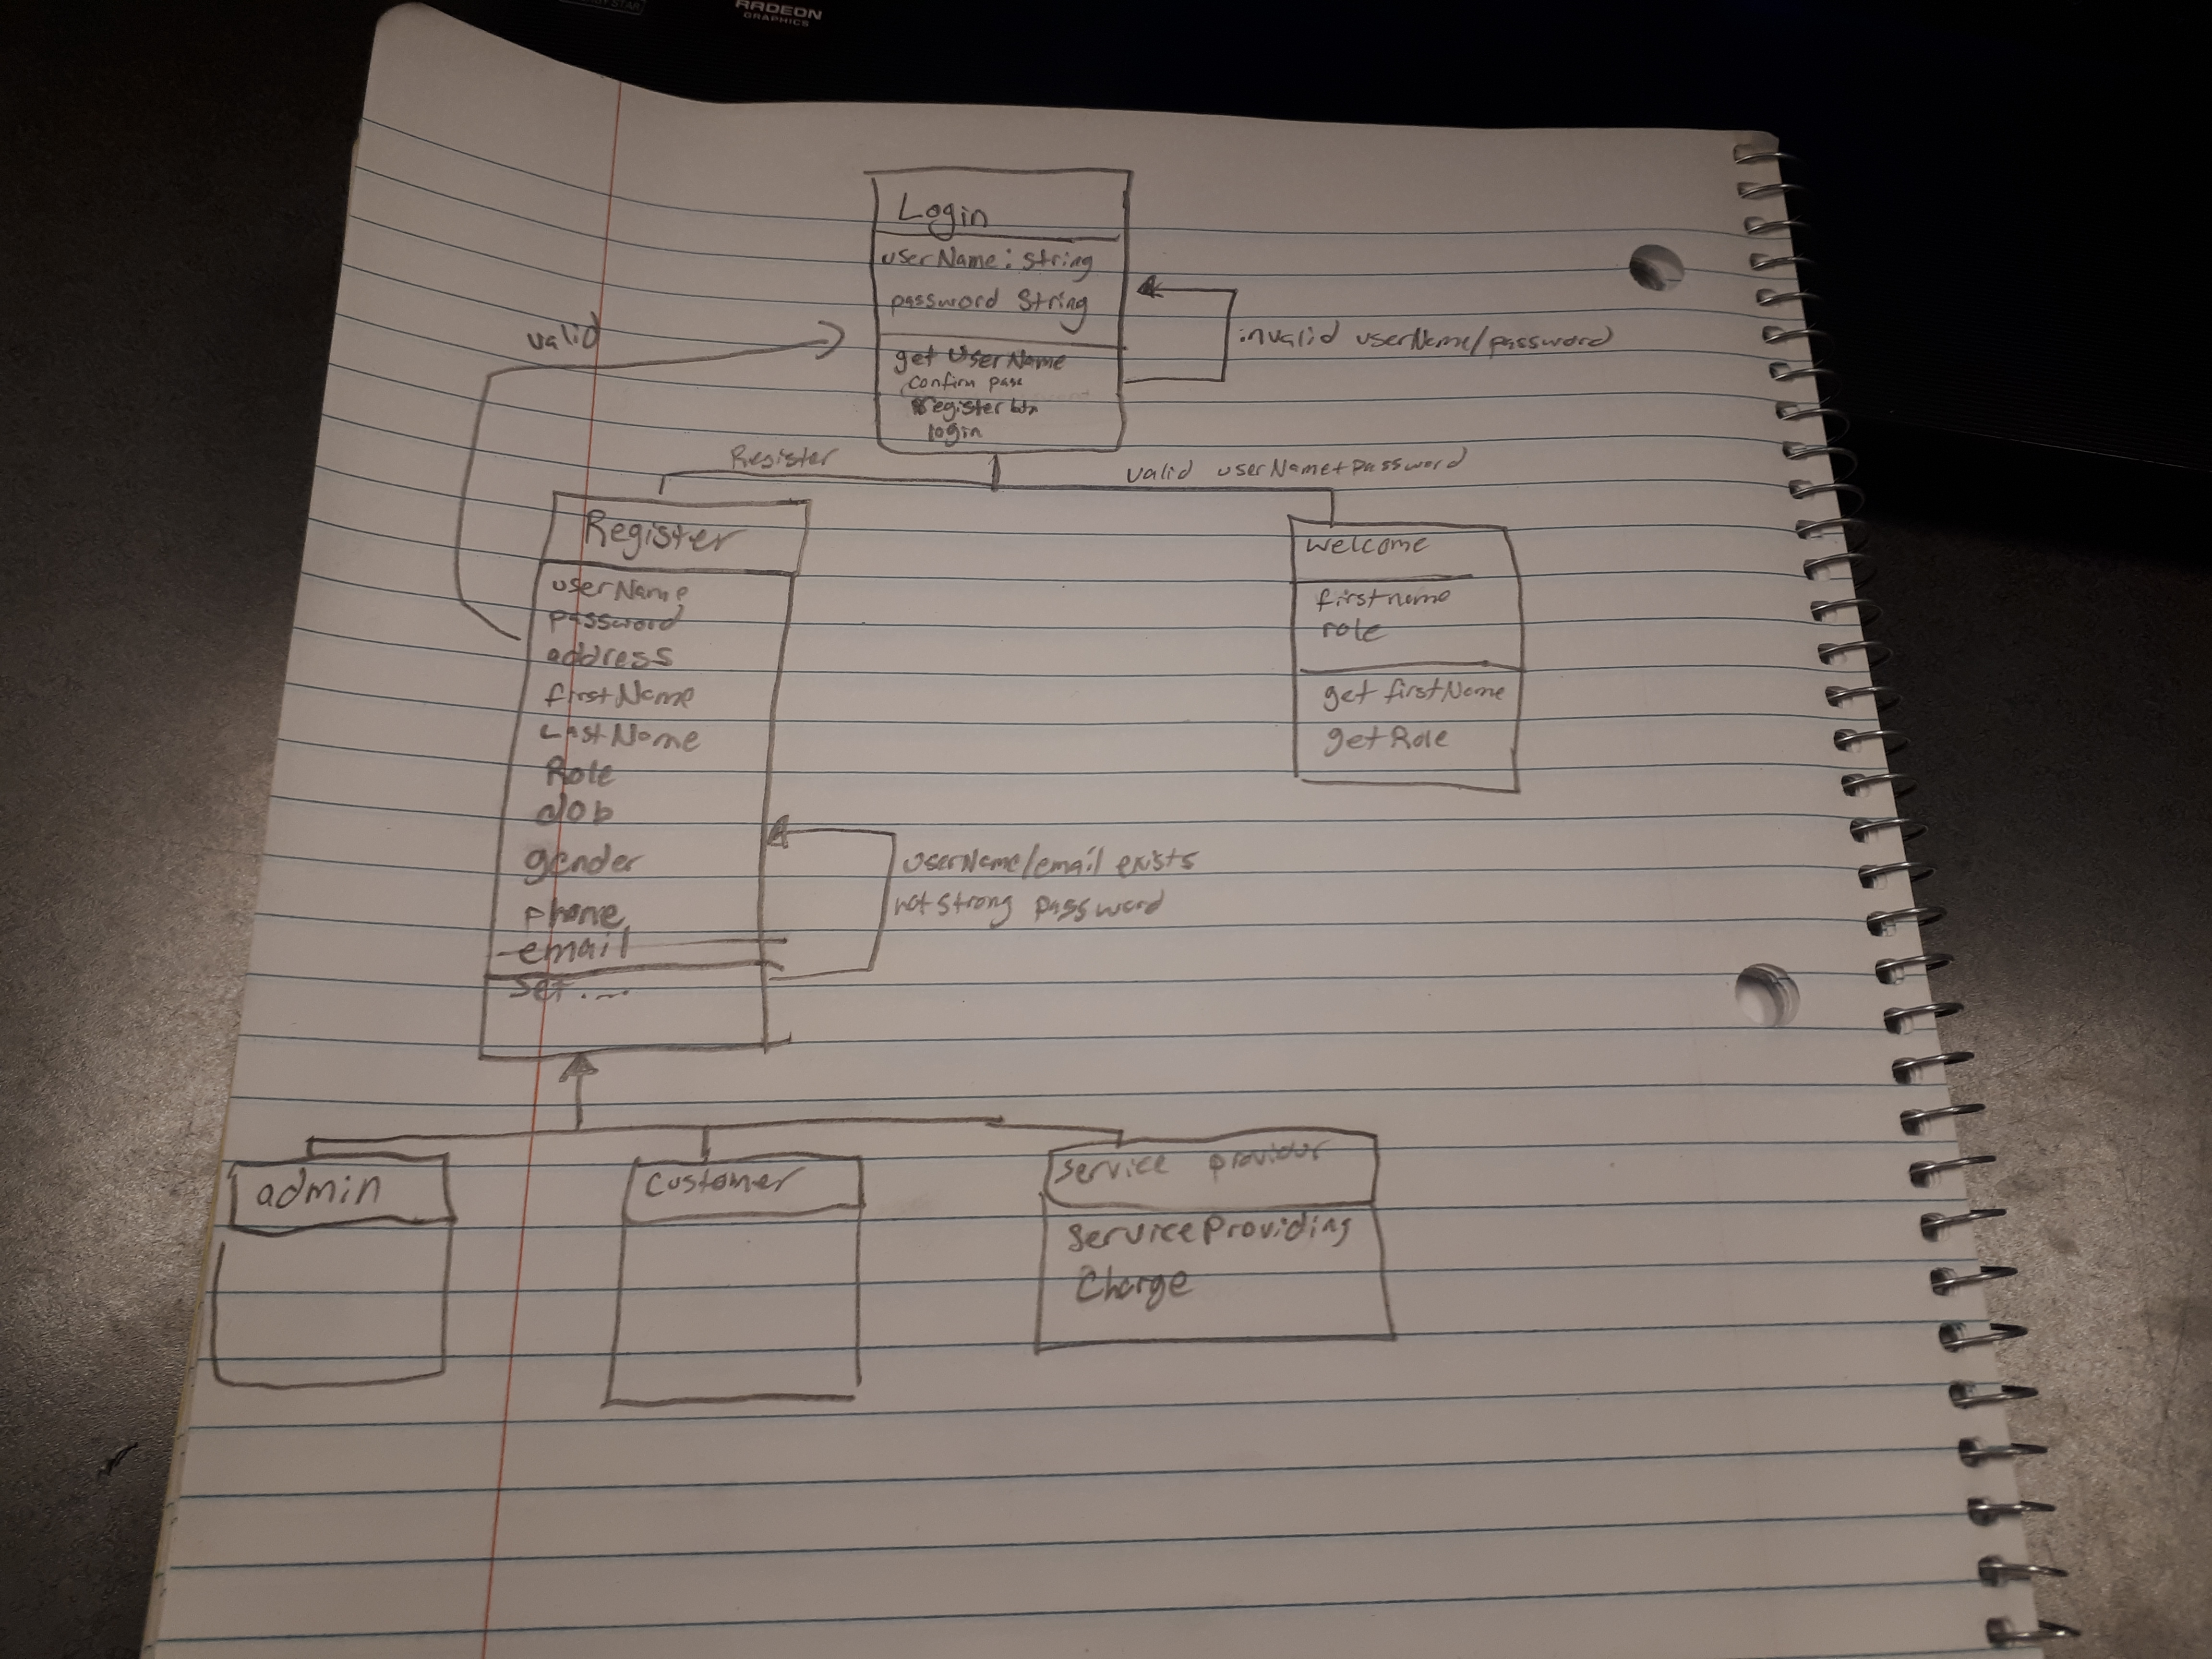 RADEON
GRAPHICS
Login
userName: string
password String
get UserName
confirm pass
Register btn
login
invalid userName/password
valid
Register
valid userName+password
Register
userName
password
address
firstName
LastName
Role
dob
gender
phone
email
set....
userName/email exists
not strong password
welcome
firstname
role
get firstName
getRole
admin
customer
service providor
serviceProviding
Charge